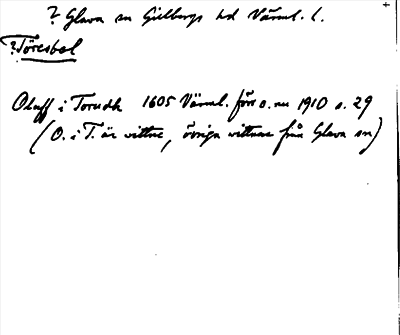 ? Glava sn Gillbergs hd Värml. l.
? Töresbol
Oluff i Torudh 1605 Värml. förr o. nu 1910 s. 29
(O. i T. är vittne, övriga vittnen från Glava sn)